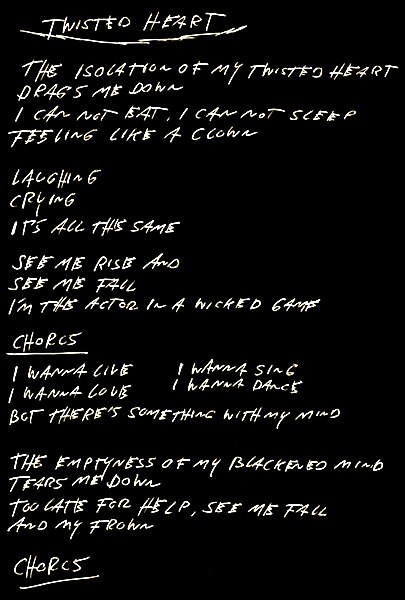 TWISTED HEART
THE ISOLATION OF MY TWISTED HEART
DRAGS ME DOWN
I CAN NOT EAT, I CAN NOT SLEEP
FEELING LIKE A CLOWN
LAUGHING
CRYING
IT'S ALL THE SAME
SEE ME RISE AND
SEE ME FALL
I'M THE ACTOR IN A WICKED GAME
CHORUS
I WANNA LIVE I WANNA SING
I WANNA LOVE I WANNA DANCE
BUT THERE'S SOMETHING WITH MY MIND
THE EMPTYNESS OF MY BLACKENED MIND
TEARS ME DOWN
TOO LATE FOR HELP, SEE ME FALL
AND MY FROWN
CHORUS